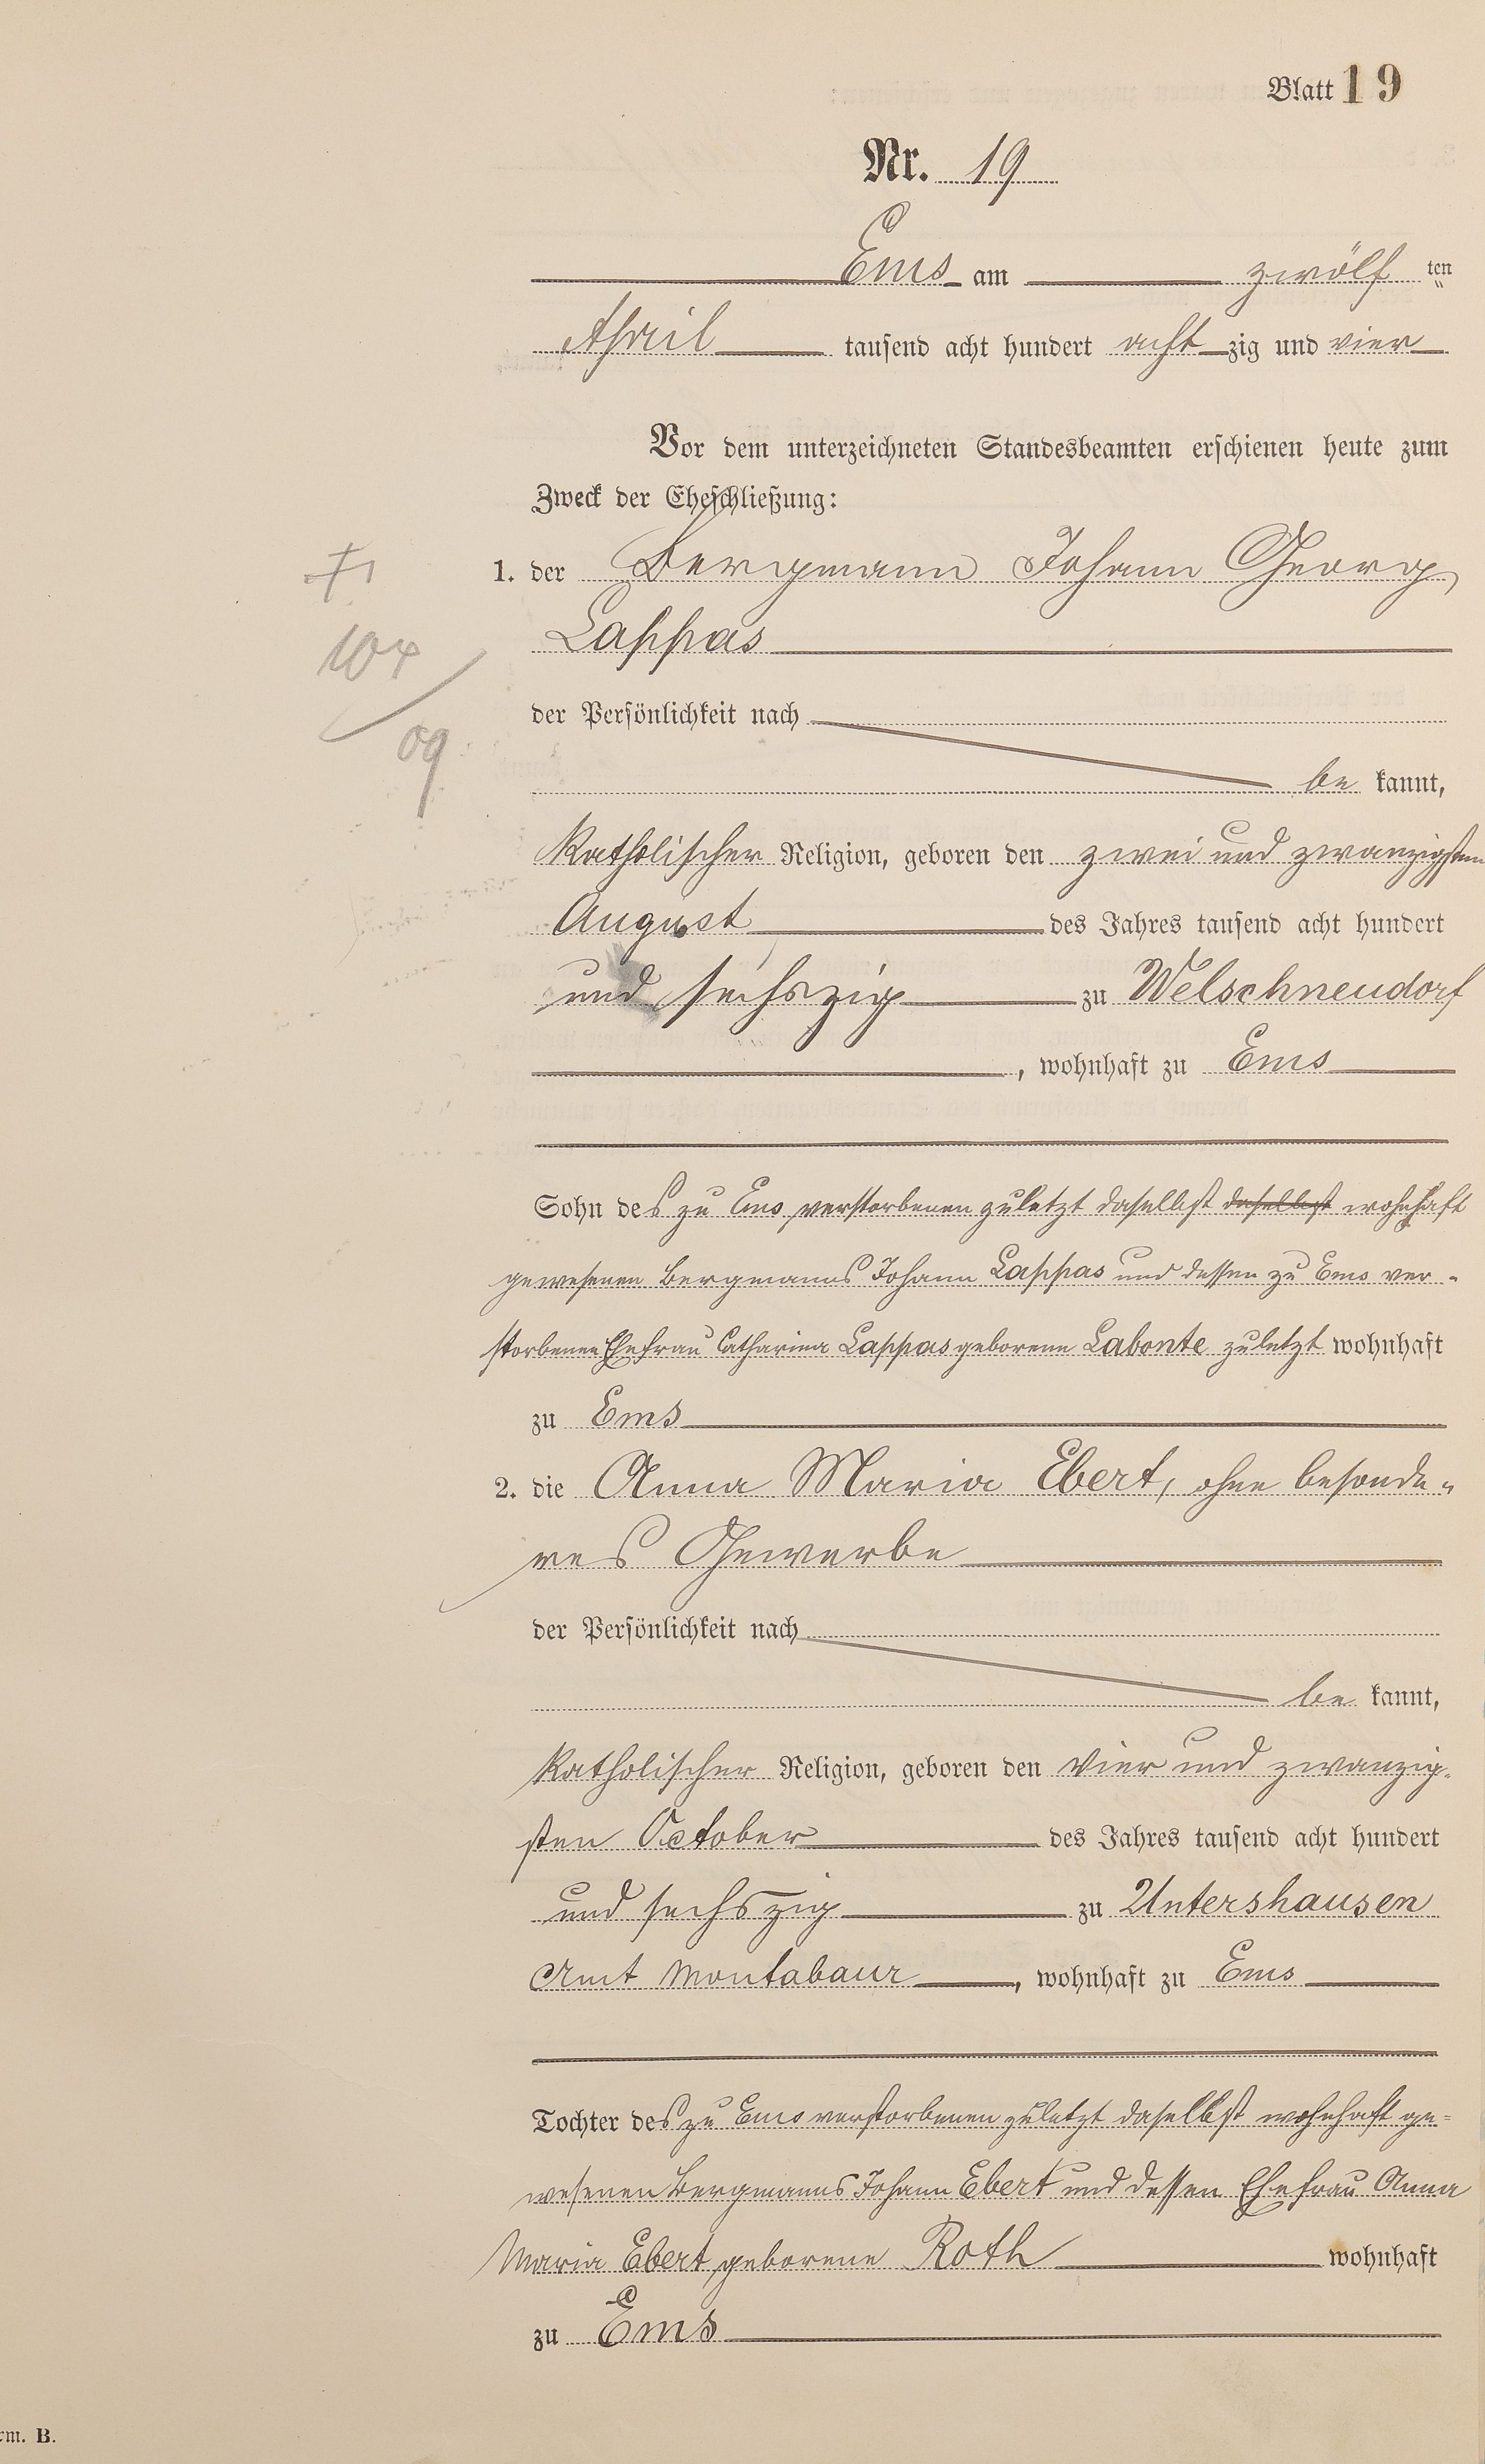 Blatt 19
Nr. 19
Ems am zwölf ten
April tausend acht hundert acht zig und vier
Vor dem unterzeichneten Standesbeamten erschienen heute zum
Zweck der Eheschließung:
1. der Bergmann Johann Georg
Lappas
der Persönlichkeit nach
be kannt,
katholischer Religion, geboren den zwei und zwanzigsten
August des Jahres tausend acht hundert
und sechszig zu Welschneudorf
, wohnhaft zu Ems
Sohn des zu Ems verstorbenen zuletzt daselbst daselbst wohnhaft
gewesenen Bergmanns Johann Lappas und dessen zu Ems ver-
storbenen Ehefrau Catharina Lappas geborene Labonte zuletzt wohnhaft
zu Ems
2. die Anna Maria Ebert, ohne besonde-
res Gewerbe
der Persönlichkeit nach
be kannt,
katholischer Religion, geboren den vier und zwanzig-
sten October des Jahres tausend acht hundert
und sechszig zu Untershausen
Amt Montabaur, wohnhaft zu Ems
Tochter des zu Ems verstorbenen zuletzt daselbst wohnhaft ge-
wesenen Bergmanns Johann Ebert und dessen Ehefrau Anna
Maria Ebert geborene Roth wohnhaft
zu Ems
rm. B.